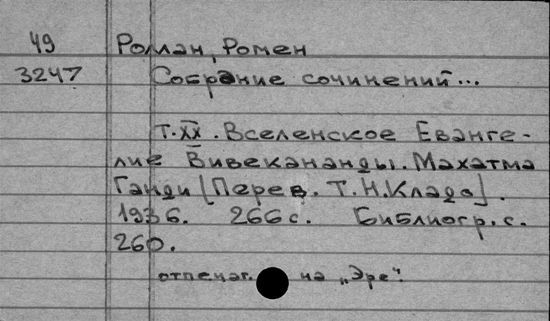 49 Роллан, Ромен
3247 Собрание сочинений...
Т. XX. Вселенское Еванге-
лие Вивекананды. Махатма
Ганди [Перев. Т.Н.Кладо].
1936. 266 с. Библиогр. с.
260.
отпечат. на „Эре".